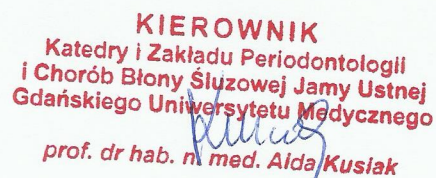 KIEROWNIK
Katedry i Zakładu Periodontologii
i Chorób Błony Śluzowej Jamy Ustnej
Gdańskiego Uniwersytetu Medycznego
prof. dr hab. n. med. Aida Kusiak